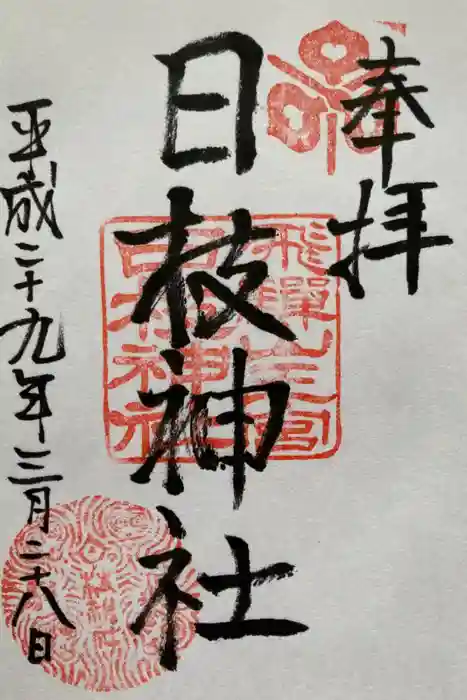 奉拝
日枝神社
平成二十九年三月二十八日
飛驒山王宮
日枝神社